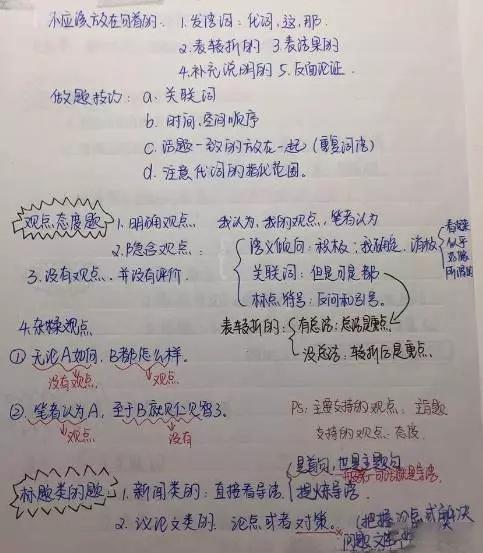 不应该放在句首的. 1.发语词: 代词, 这, 那.
2.表转折的 3.表结果的
4.补充说明的 5.反面论证.
做题技巧: a. 关联词
b. 时间、空间顺序
c. 话题一致的放在一起 (重复词语)
d. 注意代词的指代范围。
观点态度题 1.明确观点. 我认为, 我的观点, 笔者认为
2.隐含观点:
语义倾向: 积极; 我确定. 消极
看起来
似乎
所谓
关联词: 但是 可是 都
标点符号: 反问和引号。
3.没有观点. 并没有评价.
表转折的: 有总话: 总话是重点.
没总话: 转折后是重点.
4.杂糅观点
① 无论A如何, B都怎么样。
没有观点. 观点.
②. 笔者认为A, 至于B就见仁见智了。
观点. 没有
PS: 主要支持的观点: 主旨题
支持的观点: 态度.
标题类的题 1.新闻类的: 直接看导语.
是首句, 也是主题句
提炼导语.
2. 议论文类的. 论点或者对策。 (把握论点或解决
问题